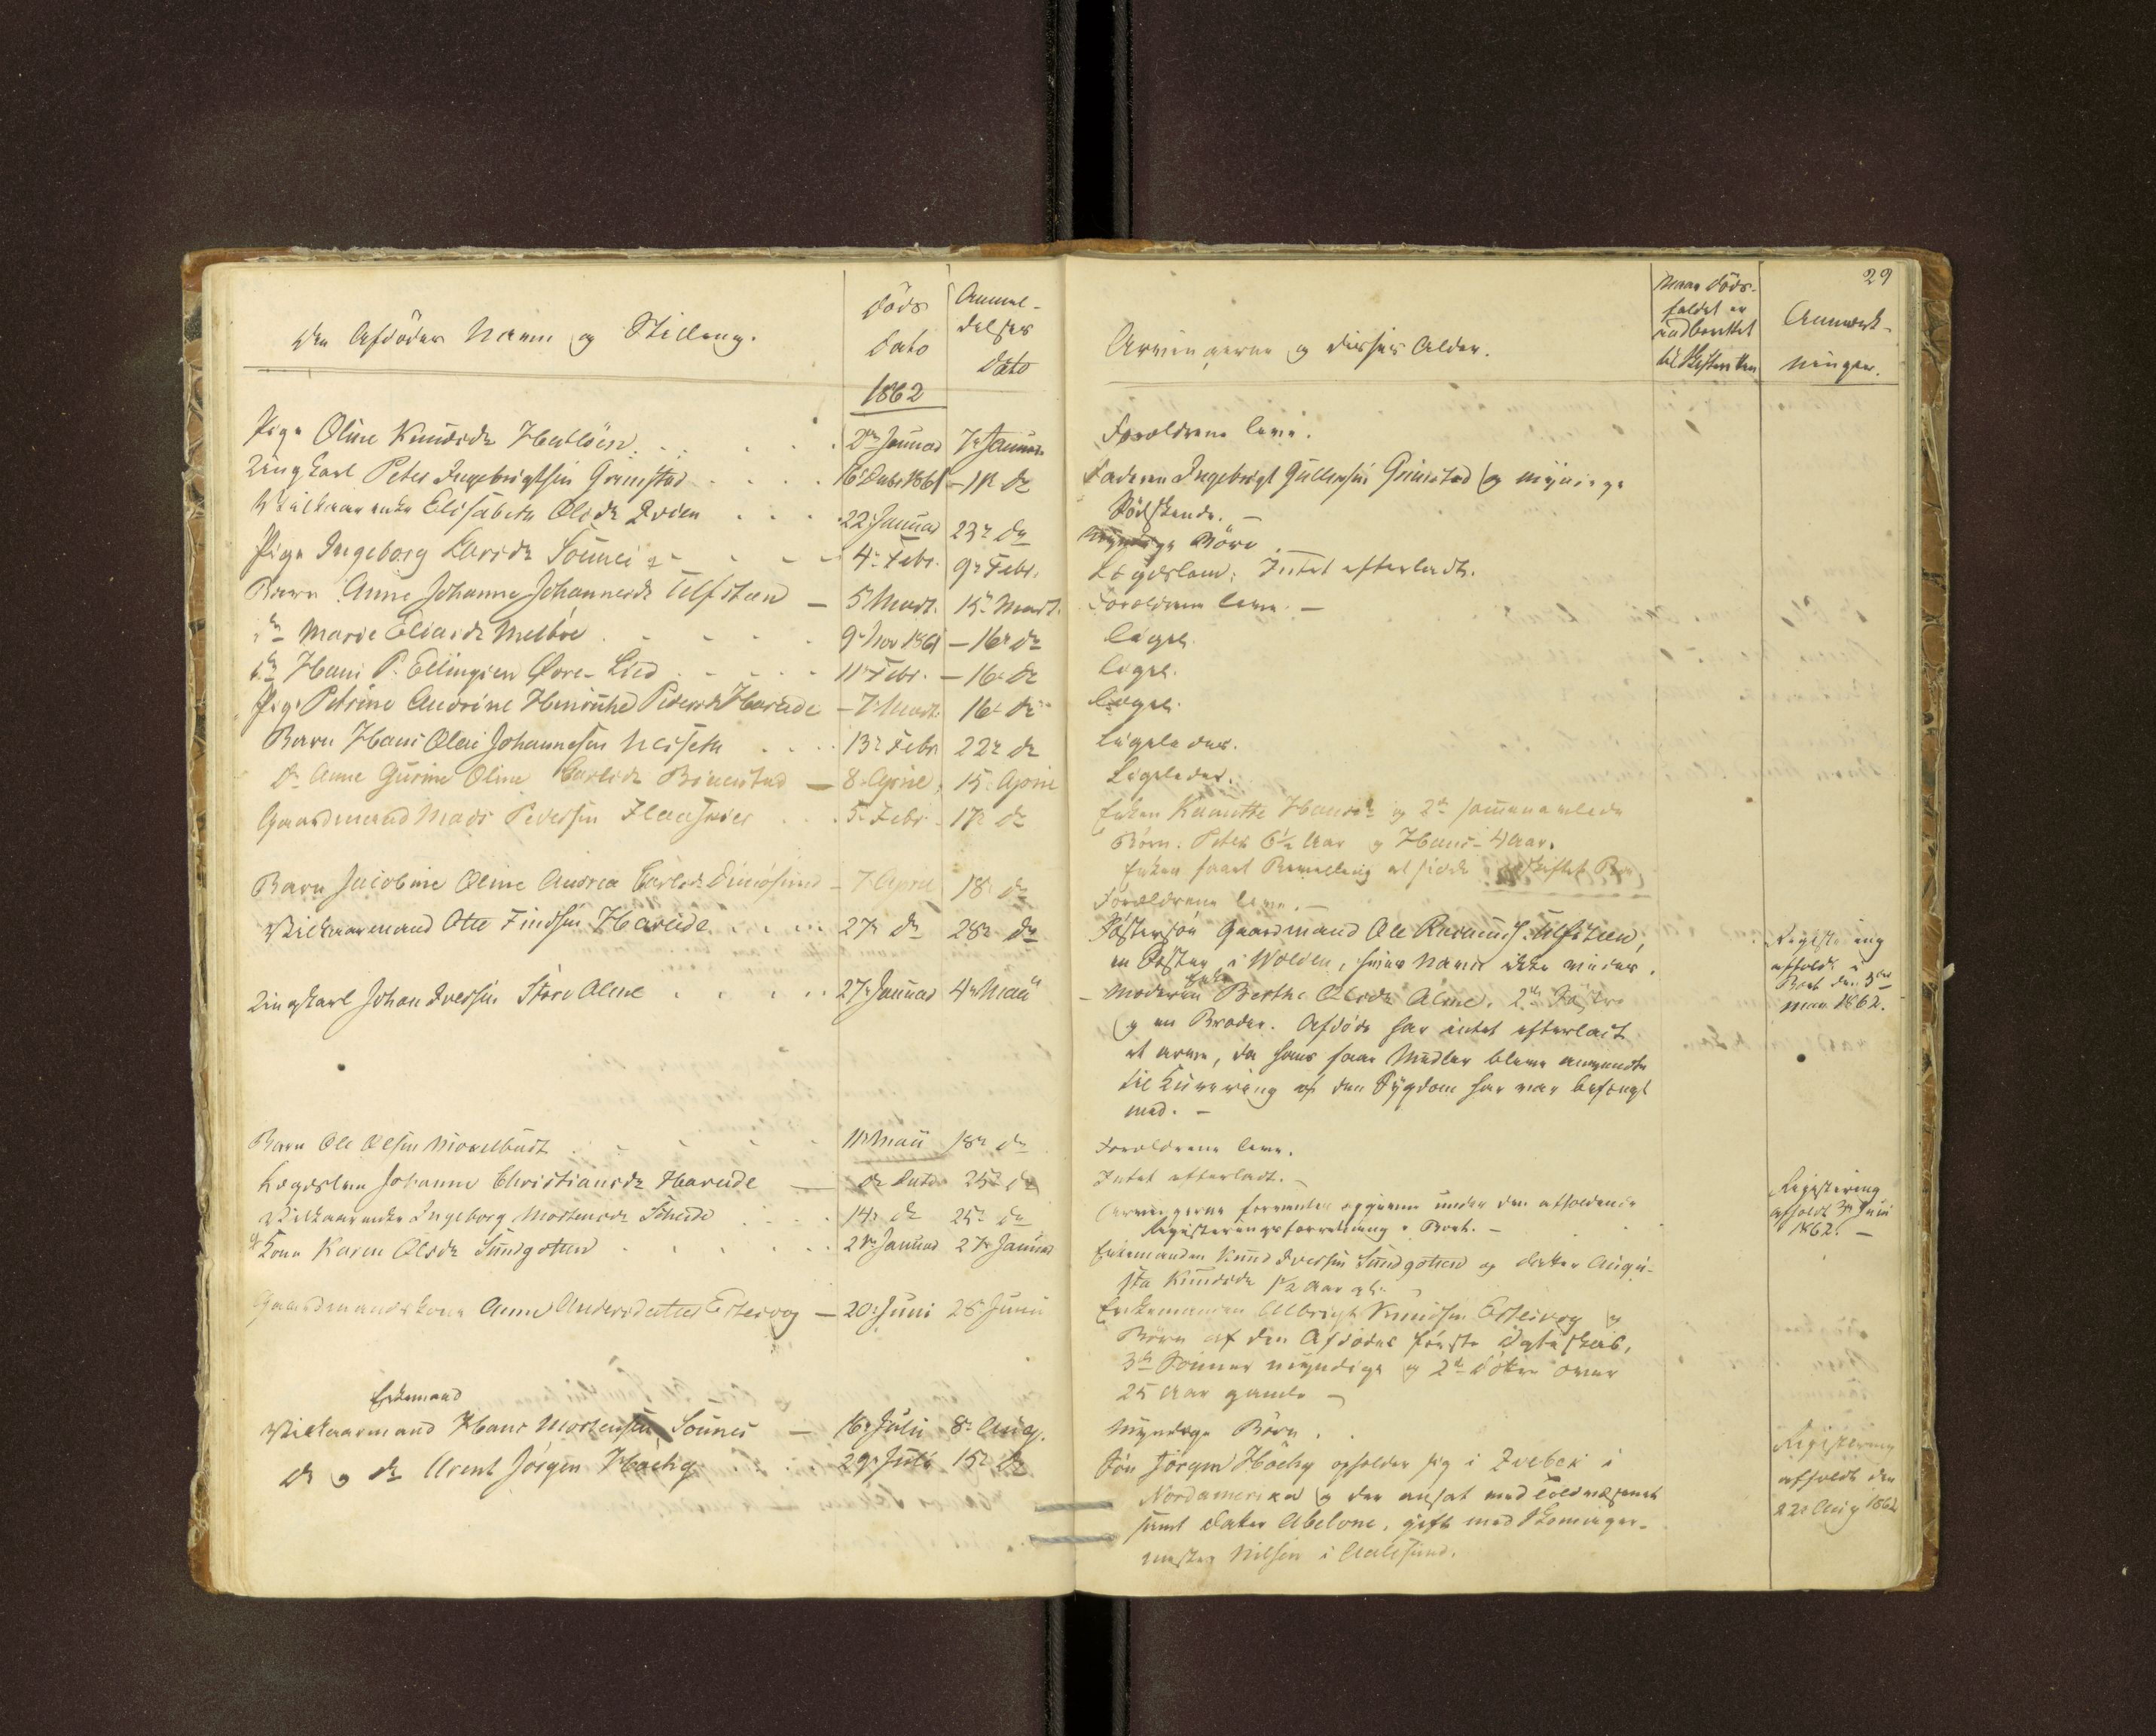 29
Den Afdödes Navn og Stilling.
Döds
Dato
Anmel-
delses
Dato
Arvingerne og disses Alder.
Naar Döds-
faldet er
indberettet
til Skifteretten
Anmærk-
ninger.
1862
Pige Oline Knudsdr Hatlöen 2den Januar 7de Januar Forældrene leve.
Ungkarl Peter Ingebrigtsen Grimstad 16 Decbr 1861 - 11te do Faderen Ingebrigt Grimstad og myndige
Södskende.
Vilkaarenke Elisabeth Olsdr 22 Januar 23de do Myndige Börn
Pige Ingeborg Larsdr 4de Febr. 9de Febr. Lægdslem. Intet efterladt.
Barn Anne Johanne Johannesdr Ulfsteen - 5 Marts. 15de Marts. Forældrene leve. -
do Marie Eliasdr Melböe 9de Nov 1861 - 16de do ligel.
do Hans P. Ellingsen Övre-Lied 11te Febr. - 16de do ligel.
Pige Petrine Andrine Henrikke Pedersdr Hareide - 7de Marts 16de do ligel.
Barn Hans Olai Johannesen Neseth 13de Febr 22de do Ligeledes.
do Anne Gurine Oline Carlsdr - 8de April, 15de April Ligeledes.
Gaardmand Mads Pedersen 5te Febr - 17de do Enken Hansdr og 2de sammenavlede
Börn: Peter 6½ Aar og Hans 4 Aar.
Enken faaet Bevilling at sidde i uskiftet Bo
Barn Jacobine Oline Andrea Carlsdr Dimösund - 7 April 18de do Forældrene leve. -
Vilkaarmand Otte Findsen Hareide 27de do 28de do Söstersön Gaardmand Ole Rasmuss. Ulfsteen,
en Söster i Volden, hvis Navn ikke vides.
Registrering
afholdt i
Boet den 3die
Mai 1862.
Ungkarl Johan Iversen Store Alme 27de Januar 4de Maii - Moderen Enke Berthe Olsdr Alme. 2de Söstre
og en Broder. Afdöde har intet efterladt
at arve, da hans faae Midler bleve anvendte
til Kurering af den Sygdom han var befængt
med. -
Barn Ole Olsen 11te Maii 18de do Forældrene leve.
Lægdslem Johanne Christiansdr Hareide - do Dato 25de do Intet efterladt. -
Vilkaarenke Ingeborg Mostensdr 14de do 25de do Arvingerne forventes opgivne under den afholdende
Registreringsforretning i Boet. -
Registrering
afholdt 3de Juni
1862. -
Kone Karen Olsdr Sundgoten 21de Januar 27de Januar Enkemanden Knud Iversen Sundgoten og datter Augu-
sta Knudsdr 1½ Aar gl.
Gaardmandskone Anne Andersdatter Eltevog - 20de Juni 28de Juni Enkemanden Albrigt Knudsen Eltevog og
Börn af den Afdödes förste Ægteskab,
3de Sönner myndige og 2de Dötre over
25 Aar gamle -
Enkemand
Vilkaarmand Hans Mortensen - 16de Juli 8de Aug. Myndige Börn.
do og do Arent Jörgen Höchy 29de Juli 15de do Sön Jörgen Höchy opholder sig i i
Nordamerika og der ansat ved Toldvæsenet
samt Datter Abelone, gift med
mester Nilsen i Aalesund.
Registrering
afholdt den
22de Aug 1862